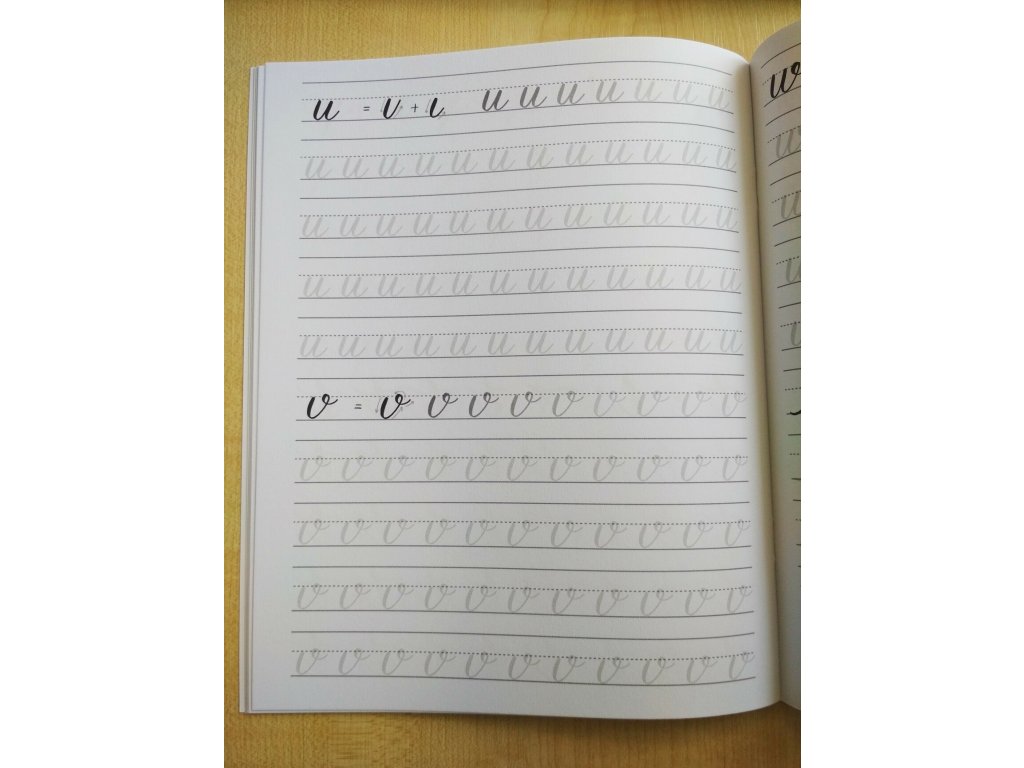 u = ι + ι u u u u u u u
u u u u u u u u u u u u
u u u u u u u u u u u u
u u u u u u u u u u u u
u u u u u u u u u u u u
v = v v v v v v v v v
v v v v v v v v v v v
v v v v v v v v v v v
v v v v v v v v v v v
v v v v v v v v v v v
w